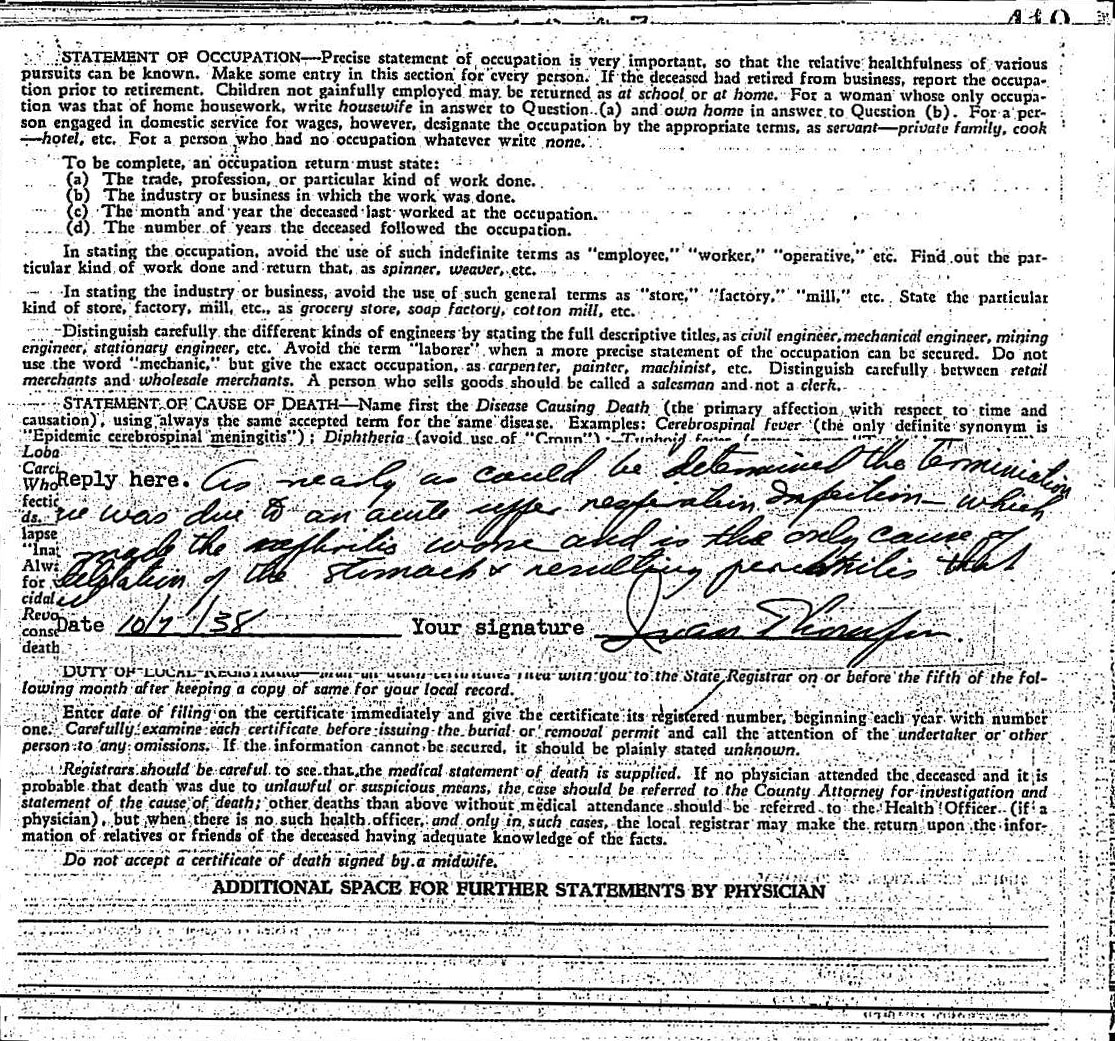 STATEMENT OF OCCUPATION—Precise statement of occupation is very important, so that the relative healthfulness of various
pursuits can be known. Make some entry in this section for every person. If the deceased had retired from business, report the occupa-
tion prior to retirement. Children not gainfully employed may be returned as at school or at home. For a woman whose only occupa-
tion was that of home housework, write housewife in answer to Question (a) and own home in answer to Question (b). For a per-
son engaged in domestic service for wages, however, designate the occupation by the appropriate terms, as servant—private family, cook
—hotel, etc. For a person who had no occupation whatever write none.
To be complete, an occupation return must state:
(a) The trade, profession, or particular kind of work done.
(b) The industry or business in which the work was done.
(c) The month and year the deceased last worked at the occupation.
(d) The number of years the deceased followed the occupation.
In stating the occupation, avoid the use of such indefinite terms as "employee," "worker," "operative," etc. Find out the par-
ticular kind of work done and return that, as spinner, weaver, etc.
In stating the industry or business, avoid the use of such general terms as "store," "factory," "mill," etc. State the particular
kind of store, factory, mill, etc., as grocery store, soap factory, cotton mill, etc.
Distinguish carefully the different kinds of engineers by stating the full descriptive titles, as civil engineer, mechanical engineer, mining
engineer, stationary engineer, etc. Avoid the term "laborer" when a more precise statement of the occupation can be secured. Do not
use the word "mechanic," but give the exact occupation, as carpenter, painter, machinist, etc. Distinguish carefully between retail
merchants and wholesale merchants. A person who sells goods should be called a salesman and not a clerk.
STATEMENT OF CAUSE OF DEATH—Name first the Disease Causing Death (the primary affection with respect to time and
causation), using always the same accepted term for the same disease. Examples: Cerebrospinal fever (the only definite synonym is
"Epidemic cerebrospinal meningitis"); Diphtheria (avoid use of "Croup");
Loba
Carci
Who Reply here. As nearly as could be determined the
fectic
ds. was due to an acute upper respiration Infection - which
lapse
"Inat made the nephritis worse and is the only cause of
Alwa
for of the stomach & resulting that
cidal
Revo
conse Date 10/7/38 Your signature
death
DUTY OF LOCAL REGISTRARS—Mail all death certificates filed with you to the State Registrar on or before the fifth of the fol-
lowing month after keeping a copy of same for your local record.
Enter date of filing on the certificate immediately and give the certificate its registered number, beginning each year with number
one. Carefully examine each certificate before issuing the burial or removal permit and call the attention of the undertaker or other
person to any omissions. If the information cannot be secured, it should be plainly stated unknown.
Registrars should be careful to see that the medical statement of death is supplied. If no physician attended the deceased and it is
probable that death was due to unlawful or suspicious means, the case should be referred to the County Attorney for investigation and
statement of the cause of death; other deaths than above without medical attendance should be referred to the Health Officer (if a
physician), but when there is no such health officer, and only in such cases, the local registrar may make the return upon the infor-
mation of relatives or friends of the deceased having adequate knowledge of the facts.
Do not accept a certificate of death signed by a midwife.
ADDITIONAL SPACE FOR FURTHER STATEMENTS BY PHYSICIAN